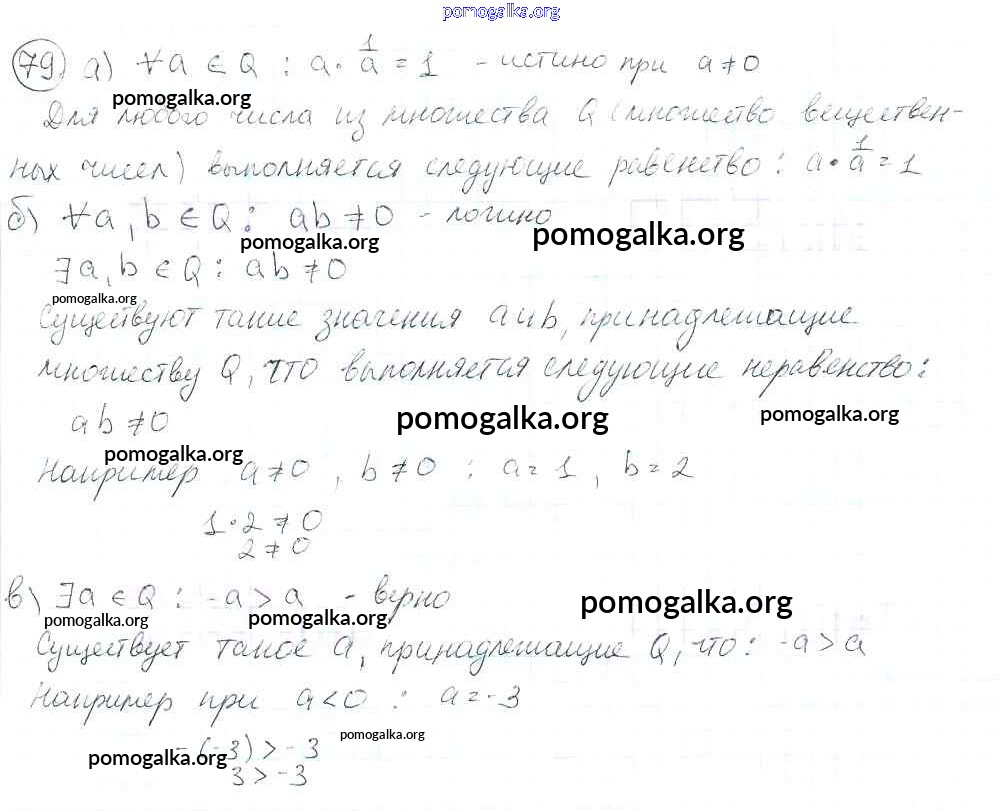 pomogalka.org
79) а) ∀a ∈ Q : a · 1/a = 1 - истино при a ≠ 0
pomogalka.org
Для любого числа из множества Q (множество веществен-
ных чисел) выполняется следующие равенство: a · 1/a = 1
б) ∀a, b ∈ Q : ab ≠ 0 - логино
pomogalka.org pomogalka.org
∃a, b ∈ Q : ab ≠ 0
pomogalka.org
Существуют такие значения a и b, принадлежащие
множеству Q, что выполняется следующие неравенство:
ab ≠ 0 pomogalka.org pomogalka.org
pomogalka.org
Например a ≠ 0 , b ≠ 0 : a = 1 , b = 2
1 · 2 ≠ 0
2 ≠ 0
в) ∃a ∈ Q : -a > a - верно
pomogalka.org pomogalka.org pomogalka.org
Существует такое a, принадлежащие Q, что: -a > a
Например при a < 0 : a = -3
pomogalka.org
-(-3) > -3
pomogalka.org
3 > -3